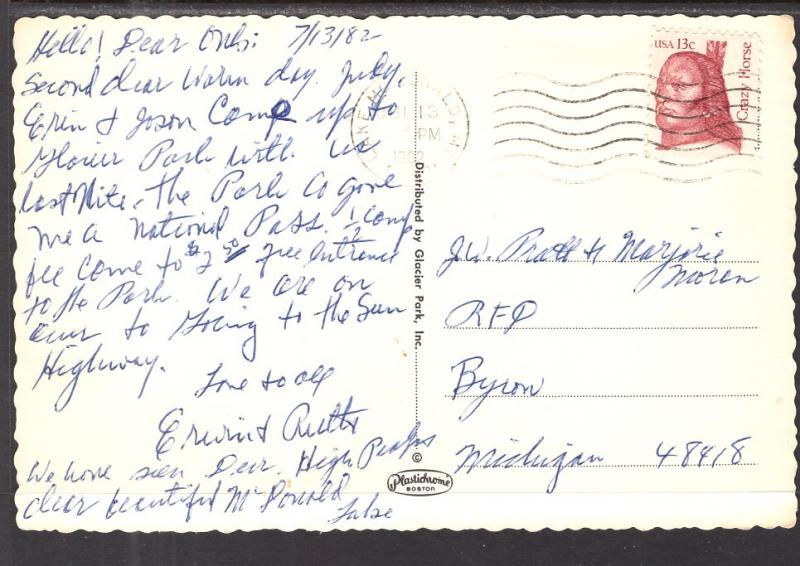 Hello! Dear Ones: 7/13/82
Second clear warm day. Judy,
Erin & Jason Camp up to
Glacier Park with us
last Nite. The Park Co gave
me a National Pass. ½ camp
fee come to $2 50 free entrance
to the Park. We are on
our to Going to the Sun
Highway.
Love to all
Erwin & Ruth
We have seen Dear, High Peaks
clear beautiful McDonald
Lake
Distributed by Glacier Park, Inc.
©
Plastichrome
BOSTON
LAKE McDONALD, M
13
PM
USA 13c
Crazy Horse
J.W. Pratt & Marjorie
RFD
Byron
Michigan 48418